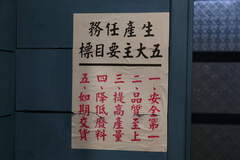 生產任務
五大主要目標
一、安全第一
二、品質至上
三、提高產量
四、降低廢料
五、如期交貨